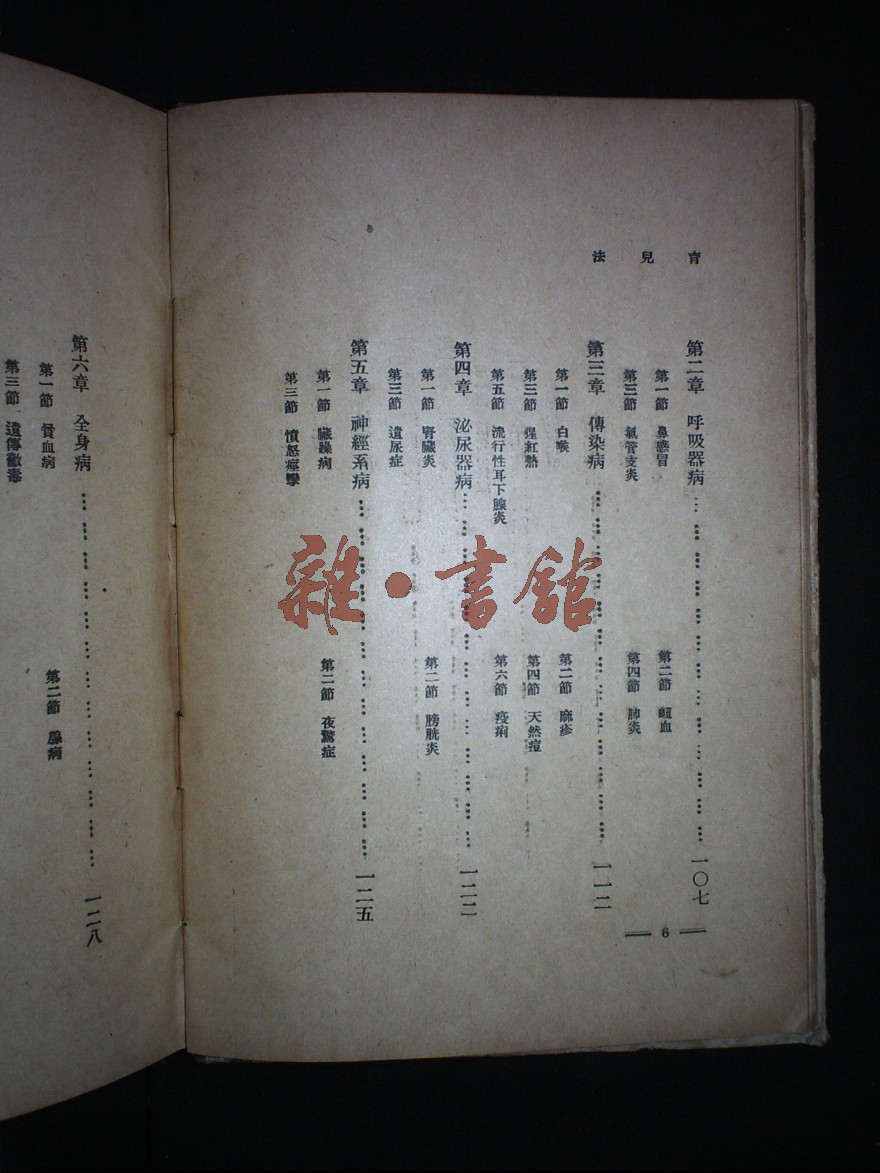 育兒法
第二章 呼吸器病 一〇七
第一節 鼻感冒 第二節 衄血
第三節 氣管支炎 第四節 肺炎
第三章 傳染病 一一二
第一節 白喉 第二節 麻疹
第三節 猩紅熱 第四節 天然痘
第五節 流行性耳下腺炎 第六節 疫痢
第四章 泌尿器病 一二二
第一節 腎臟炎 第二節 膀胱炎
第三節 遺尿症
第五章 神經系病 一二五
第一節 臟躁病 第二節 夜驚症
第三節 憤怒痙攣
6
第六章 全身病 一二八
第一節 貧血病 第二節 腺病
第三節 遺傳黴毒
雜·書館